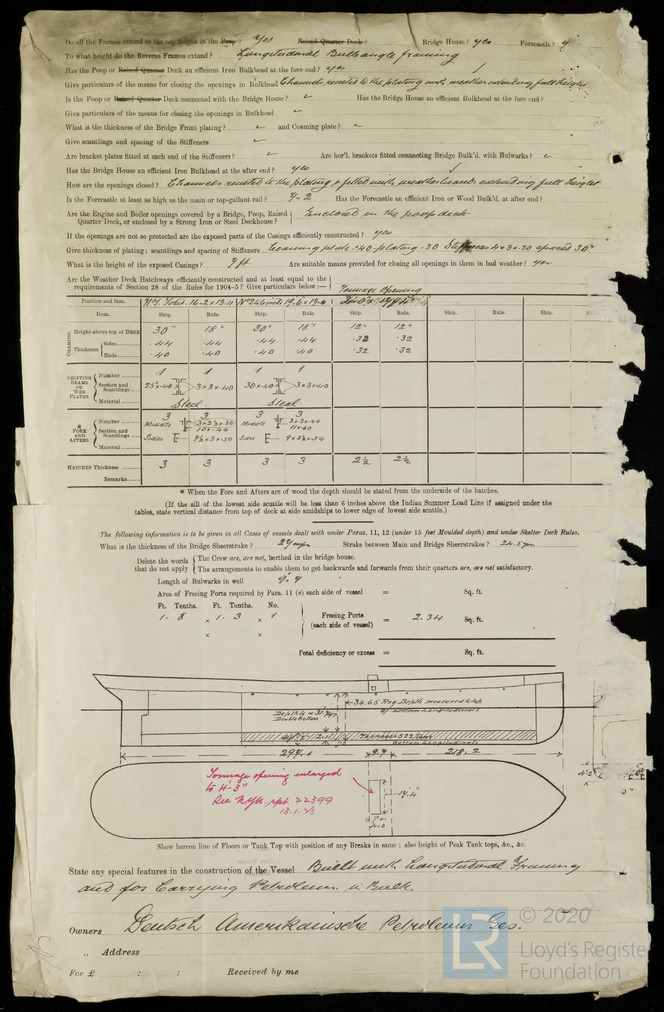 Do all the Frames extend to the top height in the Poop? Yes Raised Quarter Deck? Bridge House? yes Forecastle? y
To what height do the Reverse Frames extend? Longitudinal Bulb angle framing
Has the Poop or Raised Quarter Deck an efficient Iron Bulkhead at the fore end? yes
Give particulars of the means for closing the openings in Bulkhead Channels riveted to the plating with weather extending full height
Is the Poop or Raised Quarter Deck connected with the Bridge House? Has the Bridge House an efficient Bulkhead at the fore end?
Give particulars of the means for closing the openings in Bulkhead
What is the thickness of the Bridge Front plating? and Coaming plate?
Give scantlings and spacing of the Stiffeners
Are bracket plates fitted at each end of the Stiffeners? Are hor'l. brackets fitted connecting Bridge Bulk'd. with Bulwarks?
Has the Bridge House an efficient Iron Bulkhead at the after end? yes
How are the openings closed? Channels riveted to the plating & fitted with weatherboards extending full height
Is the Forecastle at least as high as the main or top-gallant rail? 7-2 Has the Forecastle an efficient Iron or Wood Bulk'd. at after end?
Are the Engine and Boiler openings covered by a Bridge, Poop, Raised Quarter Deck, or enclosed by a Strong Iron or Steel Deckhouse? Enclosed in the poop deck
If the openings are not so protected are the exposed parts of the Casings efficiently constructed? yes
Give thickness of plating; scantlings and spacing of Stiffeners Coaming plate .40 plating .30 Stiffeners 4 x 3 x .30 spaced 30"
What is the height of the exposed Casings? 7 ft. Are suitable means provided for closing all openings in them in bad weather? yes
Are the Weather Deck Hatchways efficiently constructed and at least equal to the requirements of Section 28 of the Rules for 1904-5? Give particulars below:— Tonnage Opening
Position and Size.
Item. Ship. Rule. Ship. Rule. Ship. Rule. Ship. Rule. Ship. Rule.
COAMING. Height above top of DECK 30" 18" 30" 18" 12" 12"
Thickness Sides .44 .44 .44 .44 .32 .32
Ends .40 .40 .40 .40 .32 .32
SHIFTING BEAMS OR WEB PLATES. Number 1 1 1 1
Section and Scantlings 25 x .40 3 x 3 x .40 30 x .40 3 x 3 x .40
Material Steel Steel
FORE AND AFTERS. Number 3 3 3 3
Section and Scantlings Middle Middle 3 x 3 x .40
Sides 9 x 3½ x .54
Material
HATCHES Thickness 3 3 3 3 2½ 2½
Remarks
* When the Fore and Afters are of wood the depth should be stated from the underside of the hatches.
(If the sill of the lowest side scuttle will be less than 6 inches above the Indian Summer Load Line if assigned under the
tables, state vertical distance from top of deck at side amidships to lower edge of lowest side scuttle.)
The following information is to be given in all Cases of vessels dealt with under Paras. 11, 12 (under 15 feet Moulded depth) and under Shelter Deck Rules.
What is the thickness of the Bridge Sheerstrake? Strake between Main and Bridge Sheerstrakes?
Delete the words that do not apply
The Crew are, are not, berthed in the bridge house.
The arrangements to enable them to get backwards and forwards from their quarters are, are not satisfactory.
Length of Bulwarks in well 9.9
Area of Freeing Ports required by Para. 11 (e) each side of vessel = Sq. ft.
Ft. Tenths. Ft. Tenths. No.
1.8 x 1.3 x 1 Freeing Ports (each side of vessel) = 2.34
x x
Total deficiency or excess = Sq. ft.
34.65 Reg. Depth measured to top
of bottom Longitudinals
Double Bottom
Bottom Longitudinals
297.1 9.9 218.2
Tonnage opening enlarged
to 4'-3"
See N.Yk. rpt. 22399
Show hereon line of Floors or Tank Top with position of any Breaks in same; also height of Peak Tank tops, &c., &c.
State any special features in the construction of the Vessel Built with Longitudinal Framing
and for Carrying Petroleum in Bulk.
Owners Deutsch Amerikanische Petroleum Ges.
" Address
Fee £ : : Received by me
LR © 2020
Lloyd's Register
Foundation